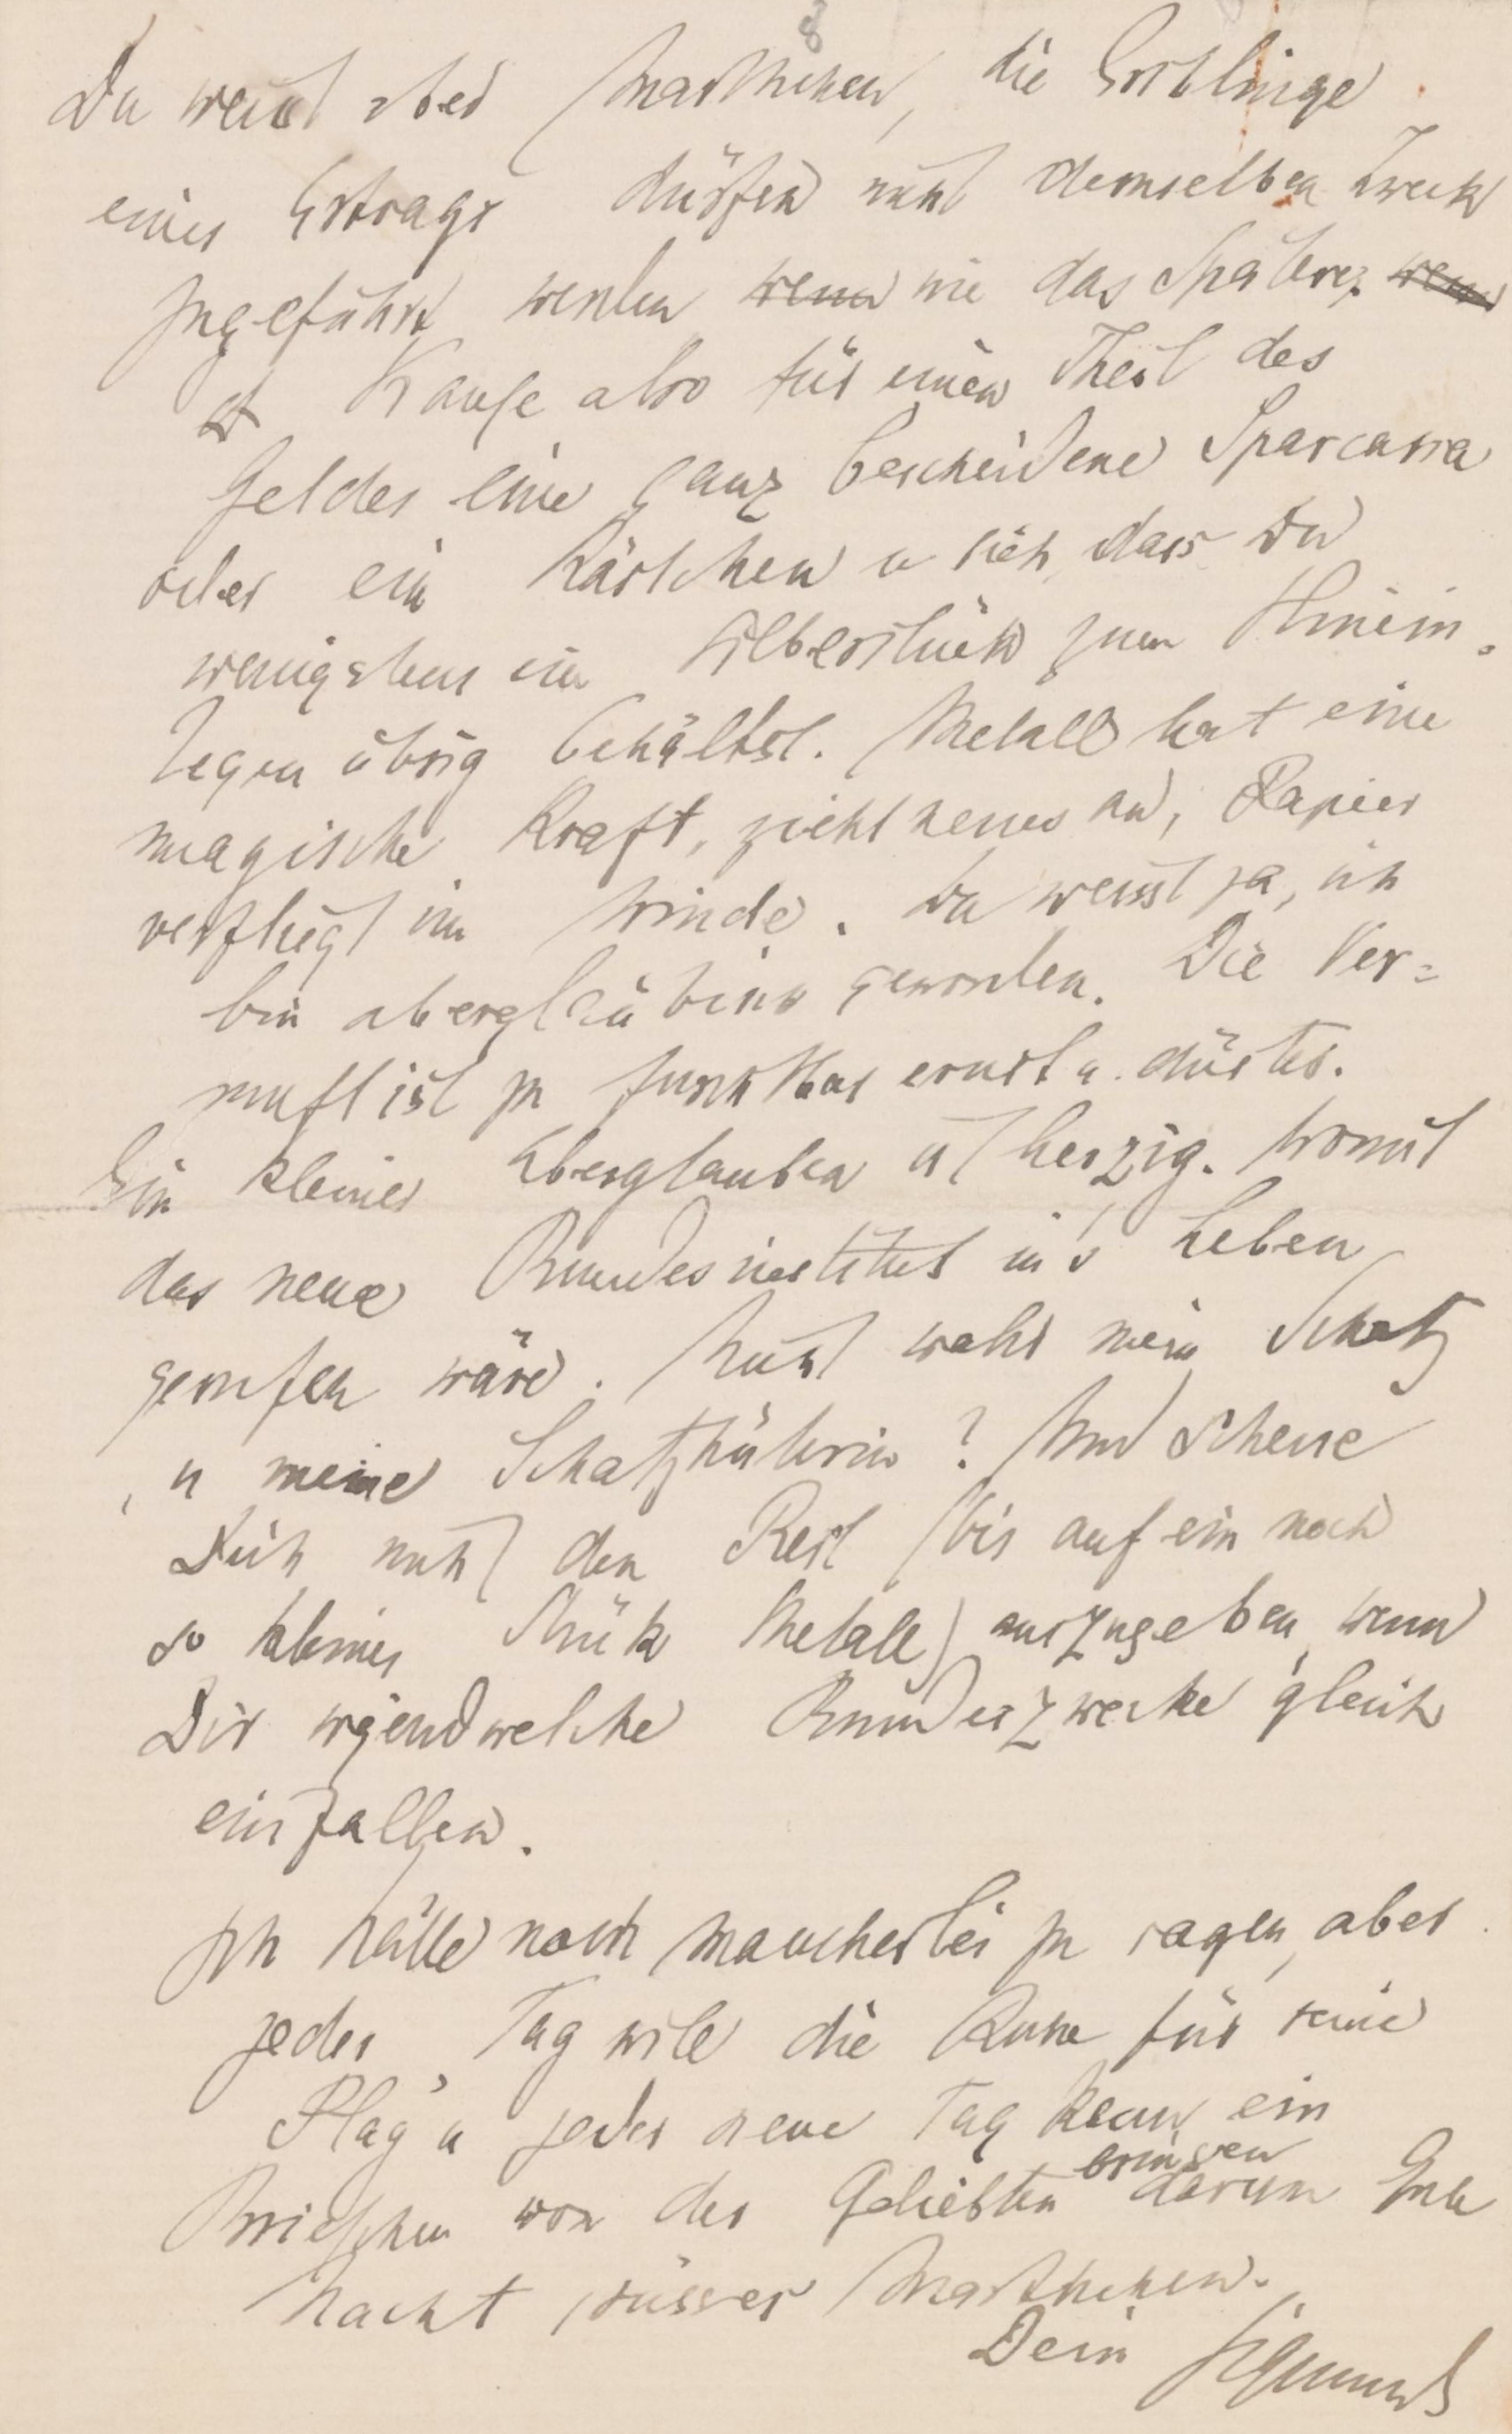 8
Du weißt aber Marthchen, die Erstlinge
eines Ertrags dürfen nicht demselben Zweck
zugeführt werden wenn wie das Spätere. wenn
Kaufe also für einen Theil des
Geldes eine ganz bescheidene Sparcassa
oder ein Kästchen u sieh dass Du
wenigstens ein Silberstück zum Hinein-
legen übrig behältst. Metall hat eine
magische Kraft, zieht neues an, Papier
verfliegt im Winde. Du weisst ja, ich
bin abergläubisch geworden. Die Ver=
nunft ist zu furchtbar ernst u. düster.
Ein kleiner Aberglauben ist herzig. Womit
das neue Bundesinstitut in's Leben
gerufen wäre. Nicht wahr mein Schatz
u meine Schatzhüterin? Und scheue
Dich nicht den Rest (bis auf ein noch
so kleines Stück Metall) auszugeben, wenn
Dir irgendwelche Bundeszwecke gleich
einfallen.
Ich hätte noch mancherlei zu sagen, aber
jeder Tag will die Ruhe für seine
Plag' u jeder neue Tag kann ein
Briefchen von der Geliebten bringen darum Gute
Nacht süsses Marthchen.
Dein Sigmund